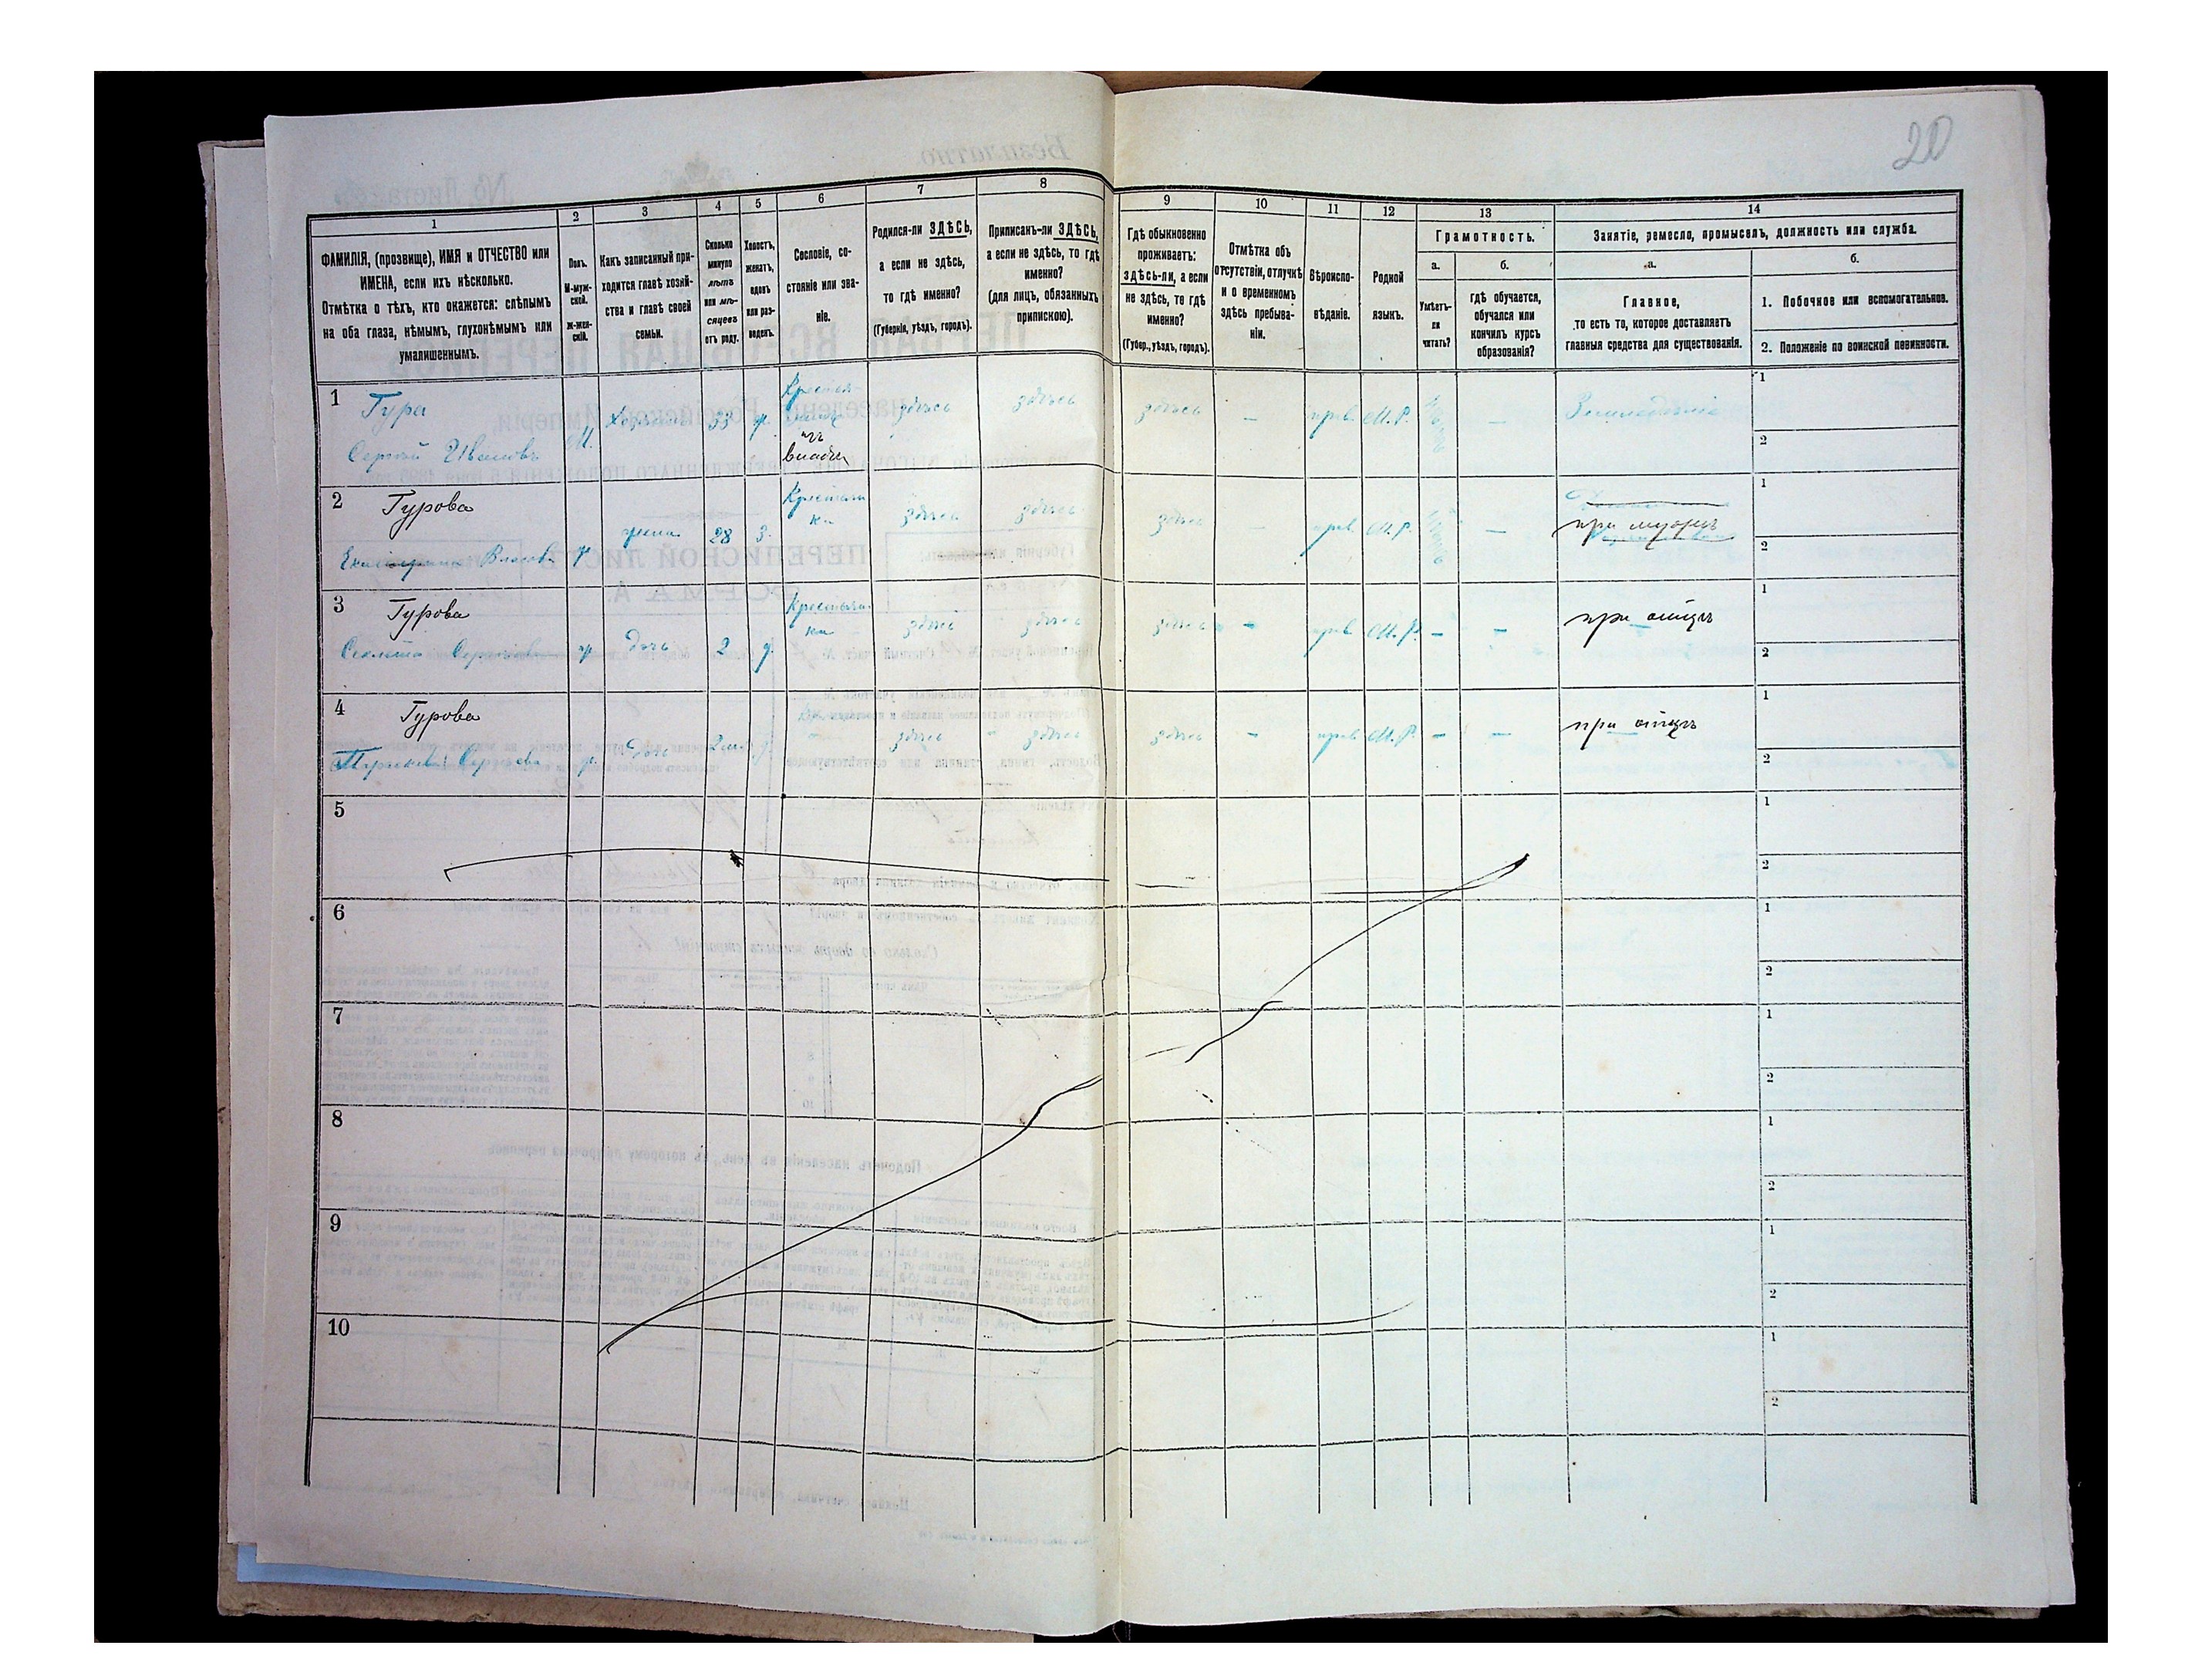 20
1 2 3 4 5 6 7 8 9 10 11 12 13 14
ФАМИЛІЯ, (прозвище), ИМЯ и ОТЧЕСТВО или
ИМЕНА, если ихъ нѣсколько.
Отмѣтка о тѣхъ, кто окажется: слѣпымъ
на оба глаза, нѣмымъ, глухонѣмымъ или
умалишеннымъ.
Полъ.
М-муж-
ской.
Ж-жен-
скій.
Какъ записанный при-
ходится главѣ хозяй-
ства и главѣ своей
семьи.
Сколько
минуло
лѣтъ
или мѣ-
сяцевъ
отъ роду.
Холостъ,
женатъ,
вдовъ
или раз-
веденъ.
Сословіе, со-
стояніе или зва-
ніе.
Родился-ли ЗДѢСЬ,
а если не здѣсь,
то гдѣ именно?
(Губернія, уѣздъ, городъ).
Приписанъ-ли ЗДѢСЬ,
а если не здѣсь, то гдѣ
именно?
(для лицъ, обязанныхъ
припискою).
Гдѣ обыкновенно
проживаетъ:
здѣсь-ли, а если
не здѣсь, то гдѣ
именно?
(Губер., уѣздъ, городъ).
Отмѣтка объ
отсутствіи, отлучкѣ
и о временномъ
здѣсь пребыва-
ніи.
Вѣроиспо-
вѣданіе.
Родной
языкъ.
Грамотность.
а.
Умѣетъ-
ли
читать?
б.
гдѣ обучается,
обучался или
кончилъ курсъ
образованія?
Занятіе, ремесло, промыселъ, должность или служба.
а.
Главное,
то есть то, которое доставляетъ
главныя средства для существованія.
б.
1. Побочное или вспомогательное.
2. Положеніе по воинской повинности.
1 Гура
Сергѣй Ивановъ М. Хозяинъ 33 ж. здѣсь здѣсь здѣсь — прав. М.Р. — Земледѣліе
1
2
2 Гурова
Власова ж жена 28 з. Крестьян
ка здѣсь здѣсь здѣсь — прав. М.Р. — при мужѣ
1
2
3 Гурова
ж дочь 2 д. Крестьян
ка здѣсь здѣсь здѣсь — прав. М.Р. — — при отцѣ
1
2
4 Гурова
ж. дочь 2 м. д. здѣсь здѣсь здѣсь — прав. М.Р. — — при отцѣ
1
2
5
1
2
6
1
2
7
1
2
8
1
2
9
1
2
10
1
2